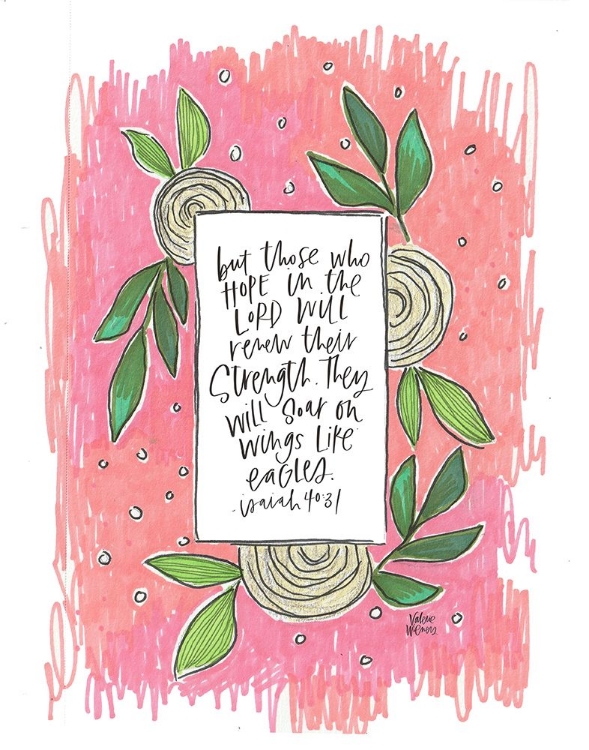 but those who
HOPE in the
LORD WILL
renew their
Strength. They
will soar on
wings like
eagles.
-isaiah 40:31
Valerie
Wieners